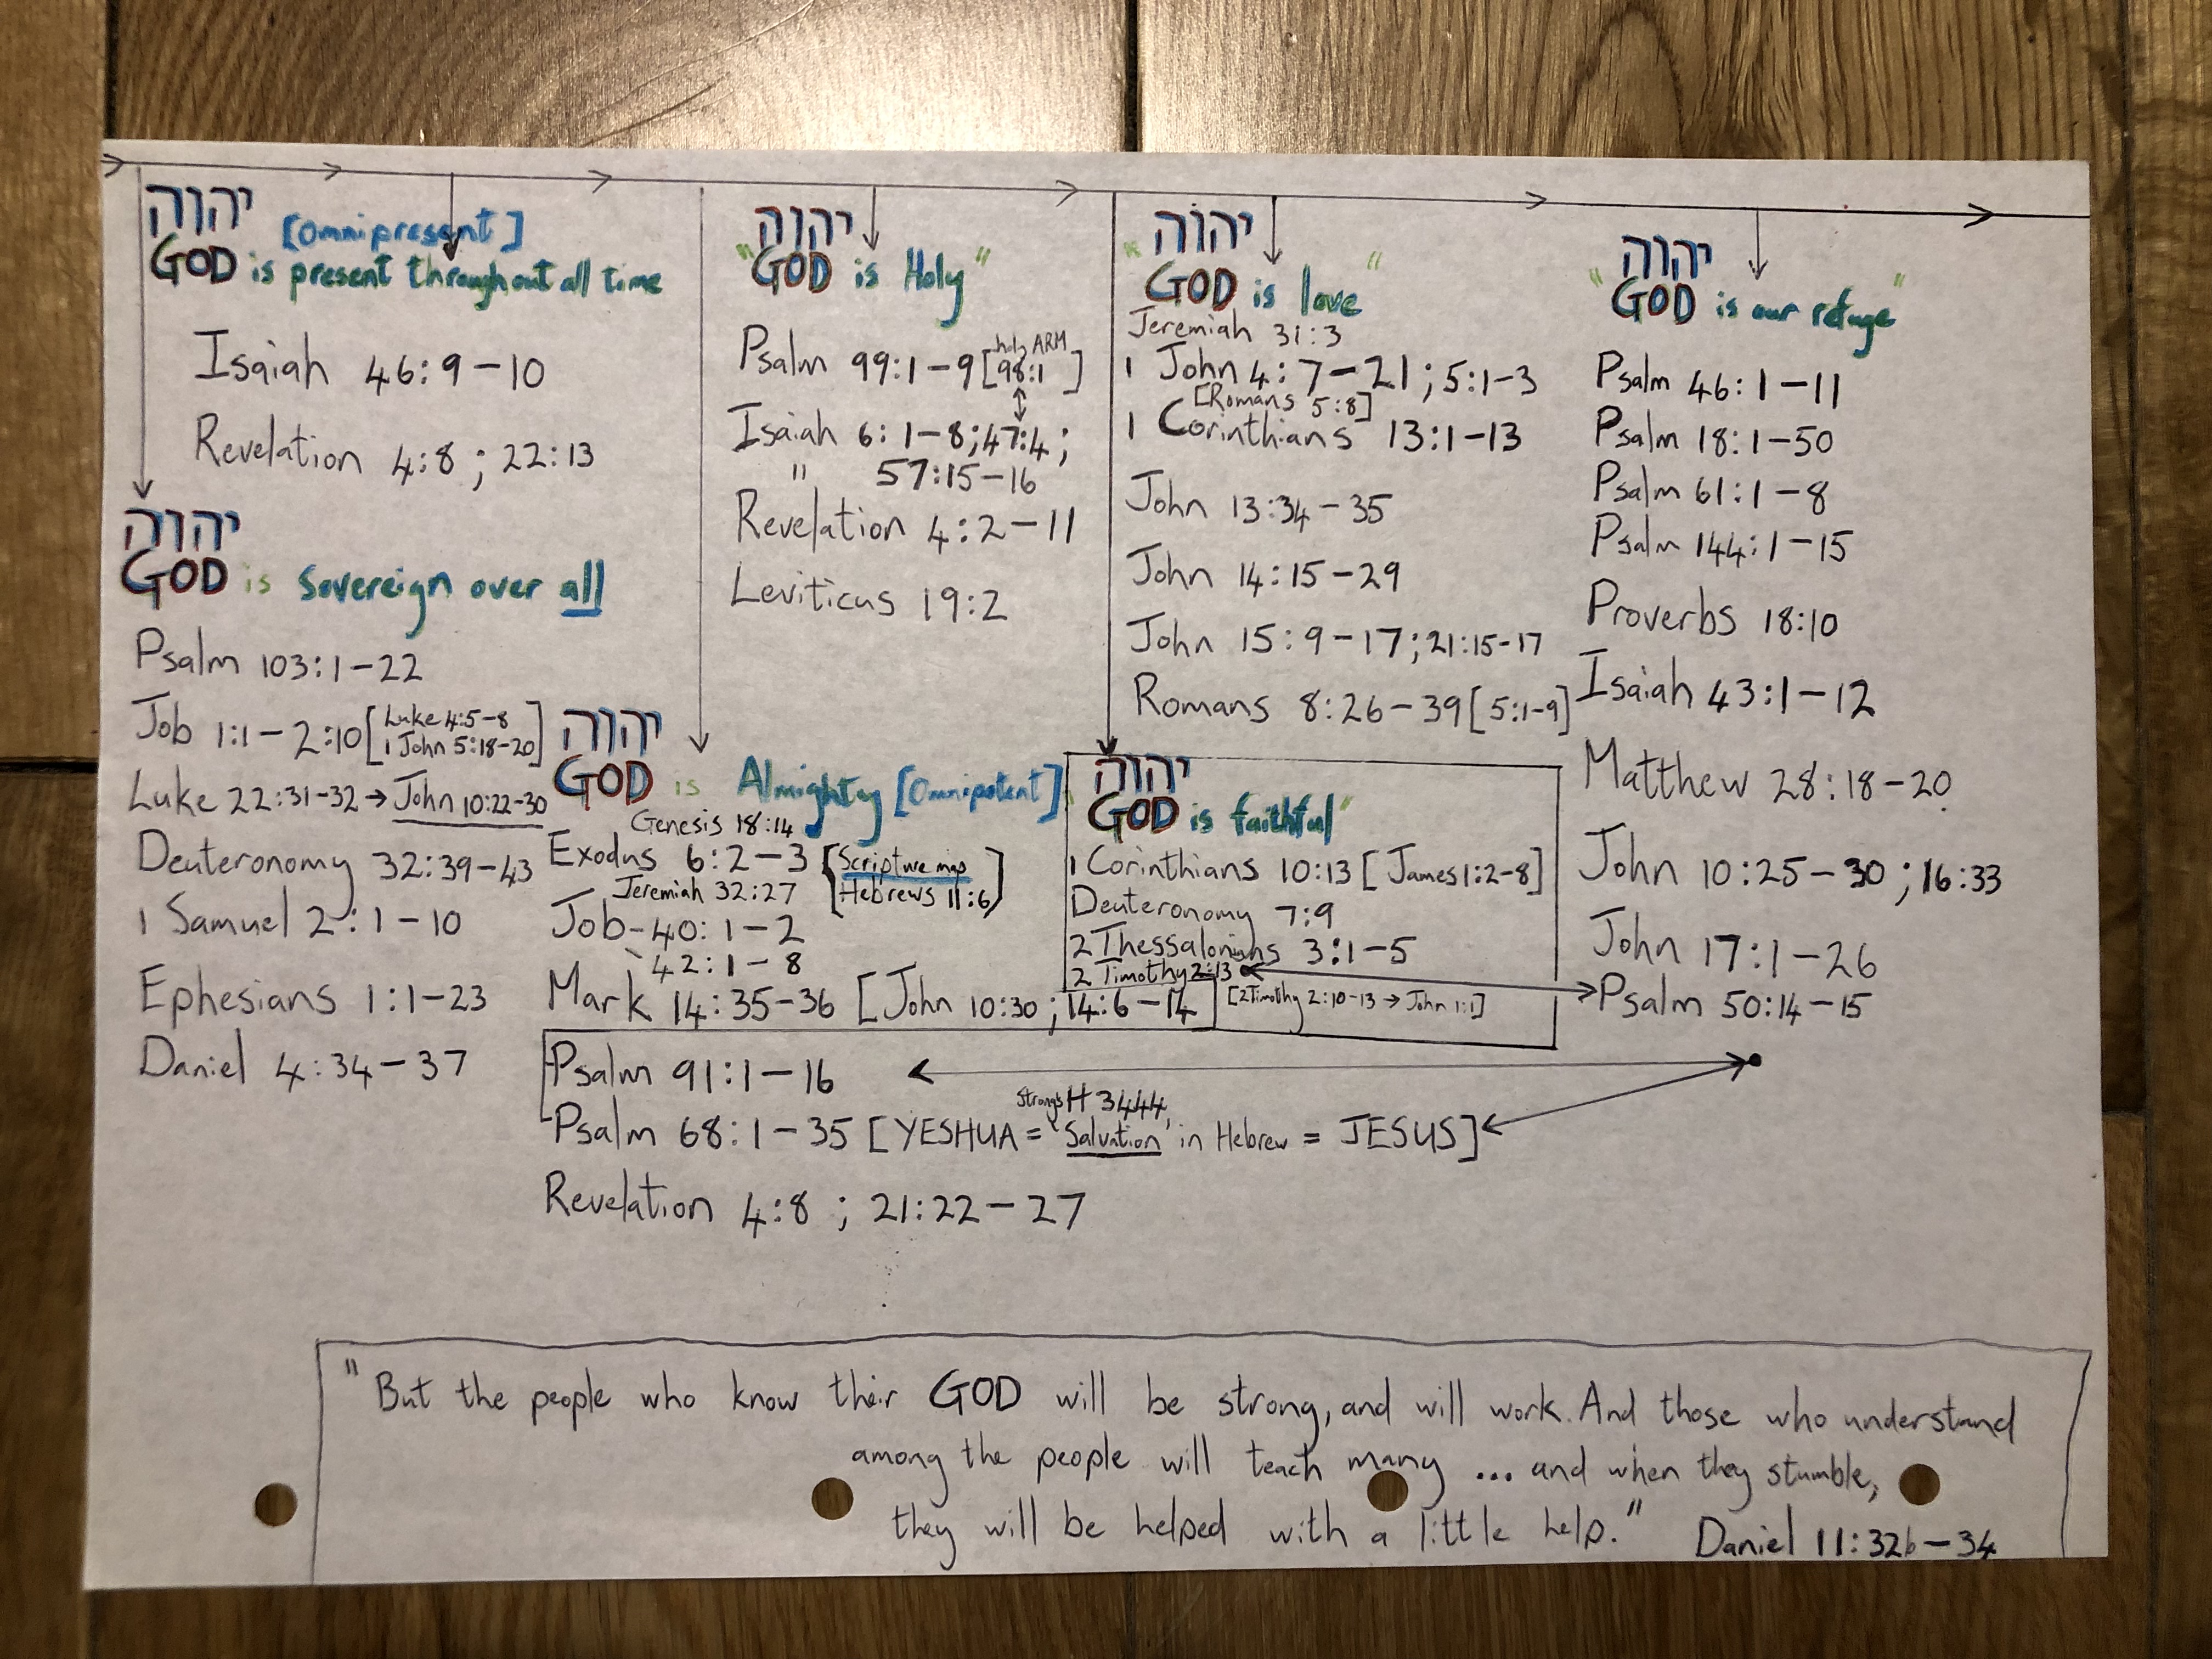 יהוה [Omnipresent]
GOD is present throughout all time
Isaiah 46:9-10
Revelation 4:8 ; 22:13
יהוה
GOD is Sovereign over all
Psalm 103:1-22
Job 1:1-2:10 [Luke 4:5-8
1 John 5:18-20]
Luke 22:31-32 → John 10:22-30
Deuteronomy 32:39-43
1 Samuel 2:1-10
Ephesians 1:1-23
Daniel 4:34-37
יהוה
"GOD is Holy"
Psalm 99:1-9 [holy ARM
98:1]
Isaiah 6:1-8; 47:4;
" 57:15-16
Revelation 4:2-11
Leviticus 19:2
יהוה
GOD is Almighty [Omnipotent]
Genesis 18:14
Exodus 6:2-3 [Scripture map
Hebrews 11:6]
Jeremiah 32:27
Job 40:1-2
42:1-8
Mark 14:35-36 [John 10:30 ; 14:6-14]
Psalm 91:1-16
Strong's H 3444
Psalm 68:1-35 [YESHUA = 'Salvation' in Hebrew = JESUS]
Revelation 4:8 ; 21:22-27
יהוה
"GOD is love"
Jeremiah 31:3
1 John 4:7-21 ; 5:1-3
[Romans 5:8]
1 Corinthians 13:1-13
John 13:34-35
John 14:15-29
John 15:9-17 ; 21:15-17
Romans 8:26-39 [5:1-9]
יהוה
"GOD is faithful"
1 Corinthians 10:13 [James 1:2-8]
Deuteronomy 7:9
2 Thessalonians 3:1-5
2 Timothy 2:13
[2 Timothy 2:10-13 → John 1:1]
יהוה
"GOD is our refuge"
Psalm 46:1-11
Psalm 18:1-50
Psalm 61:1-8
Psalm 144:1-15
Proverbs 18:10
Isaiah 43:1-12
Matthew 28:18-20
John 10:25-30 ; 16:33
John 17:1-26
Psalm 50:14-15
"But the people who know their GOD will be strong, and will work. And those who understand
among the people will teach many ... and when they stumble,
they will be helped with a little help." Daniel 11:32b-34